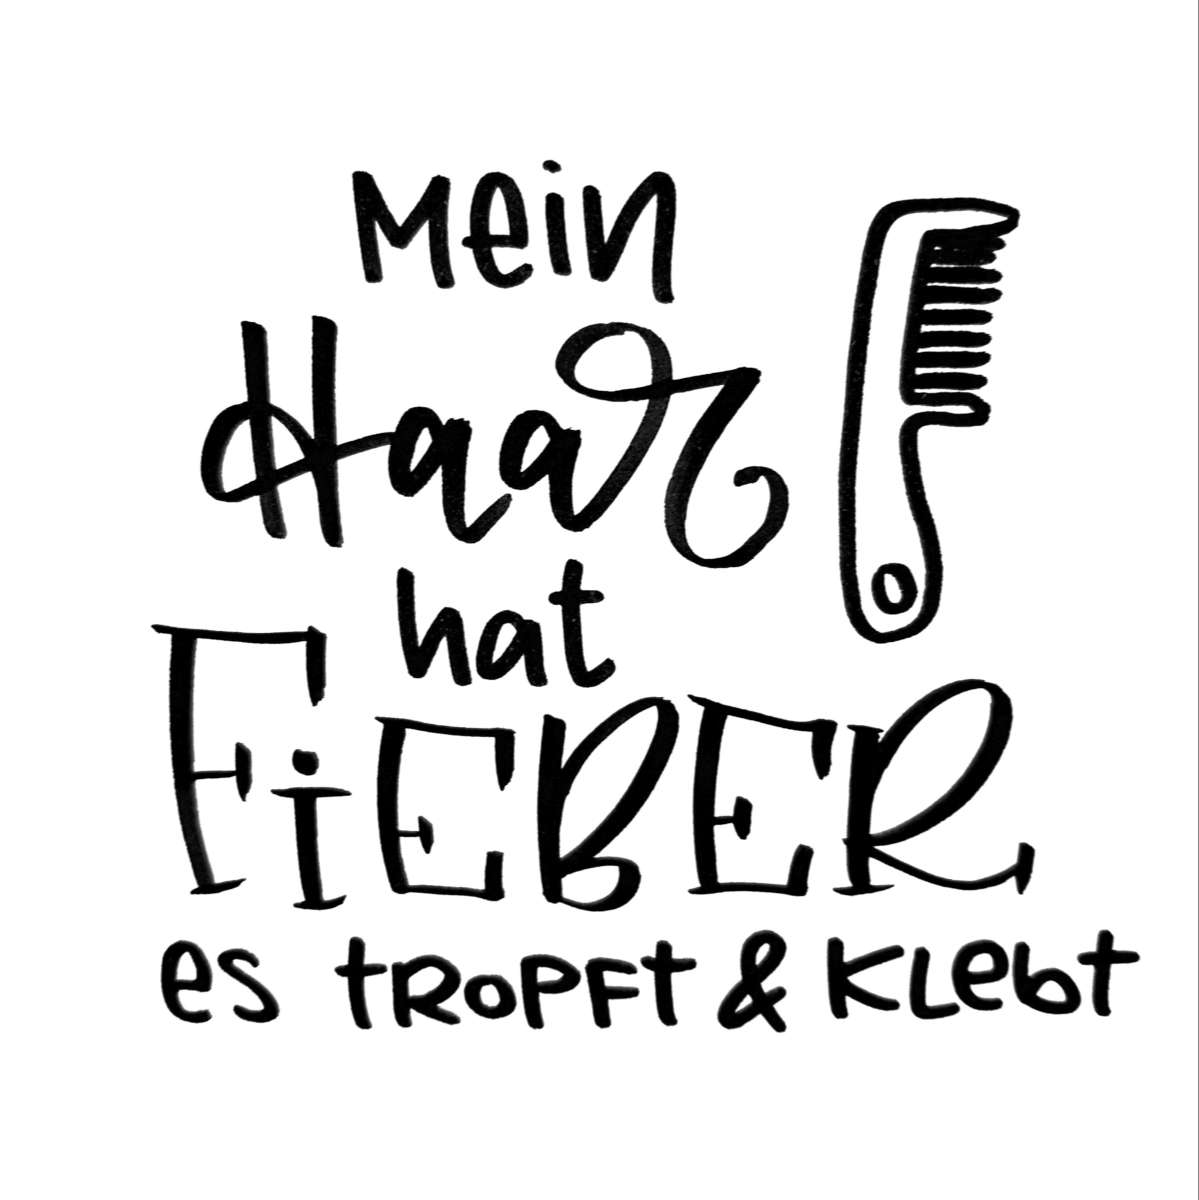 Mein
Haar
hat
FiEBER
es TROPFT & KLebt